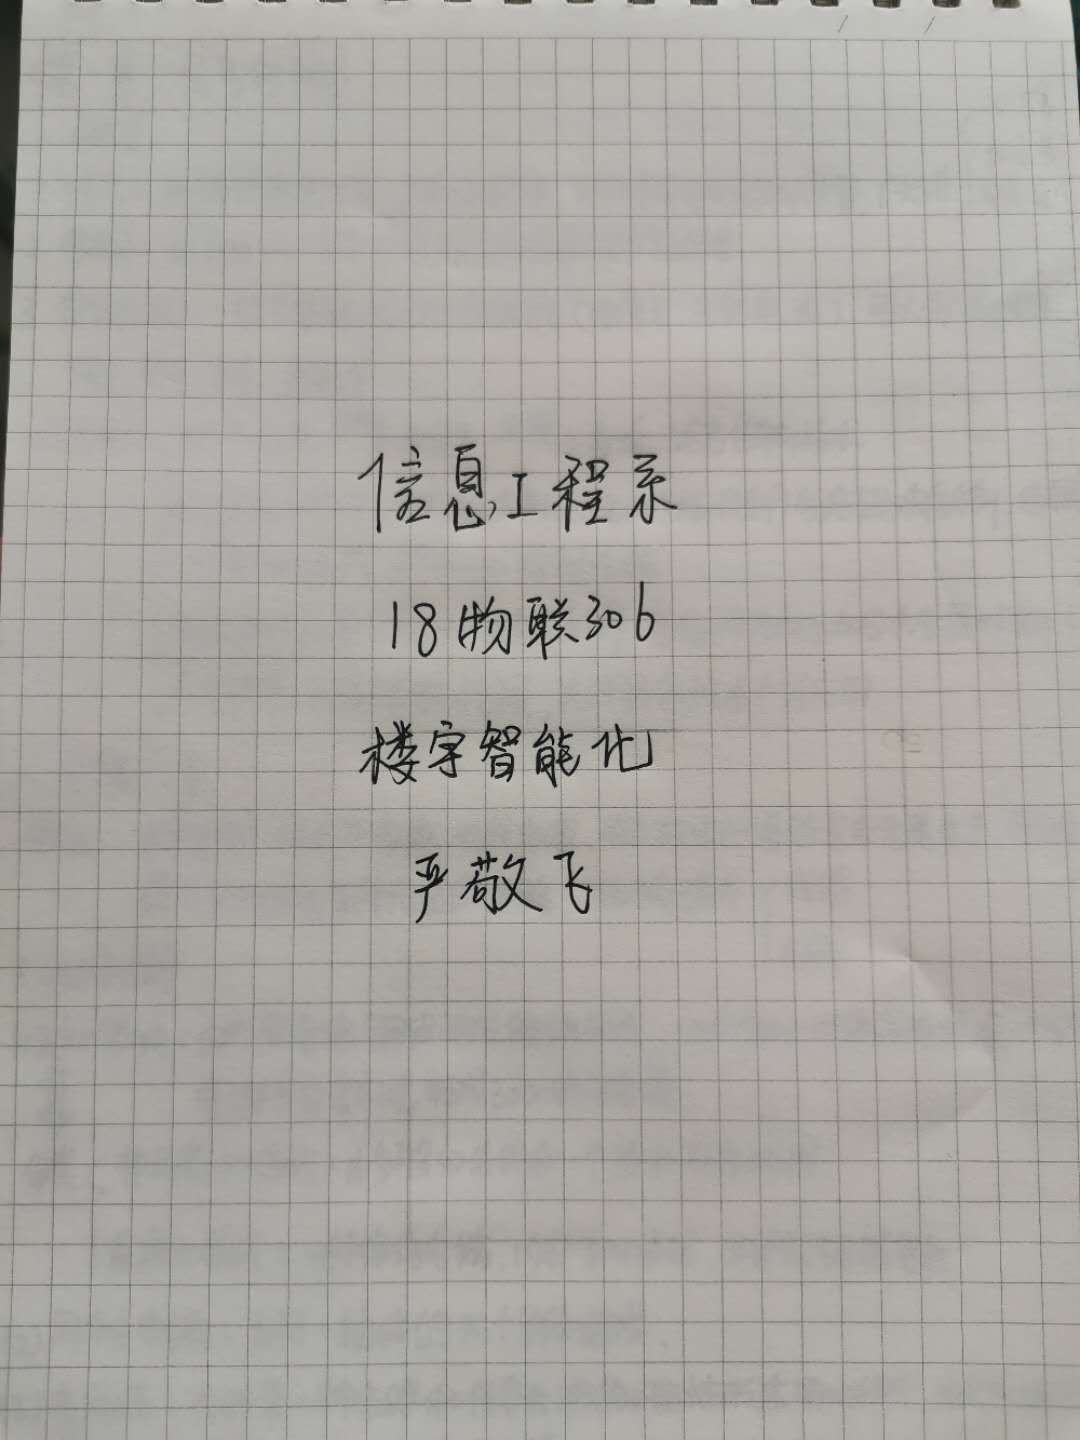 信息工程系
18物联306
楼宇智能化
严敬飞